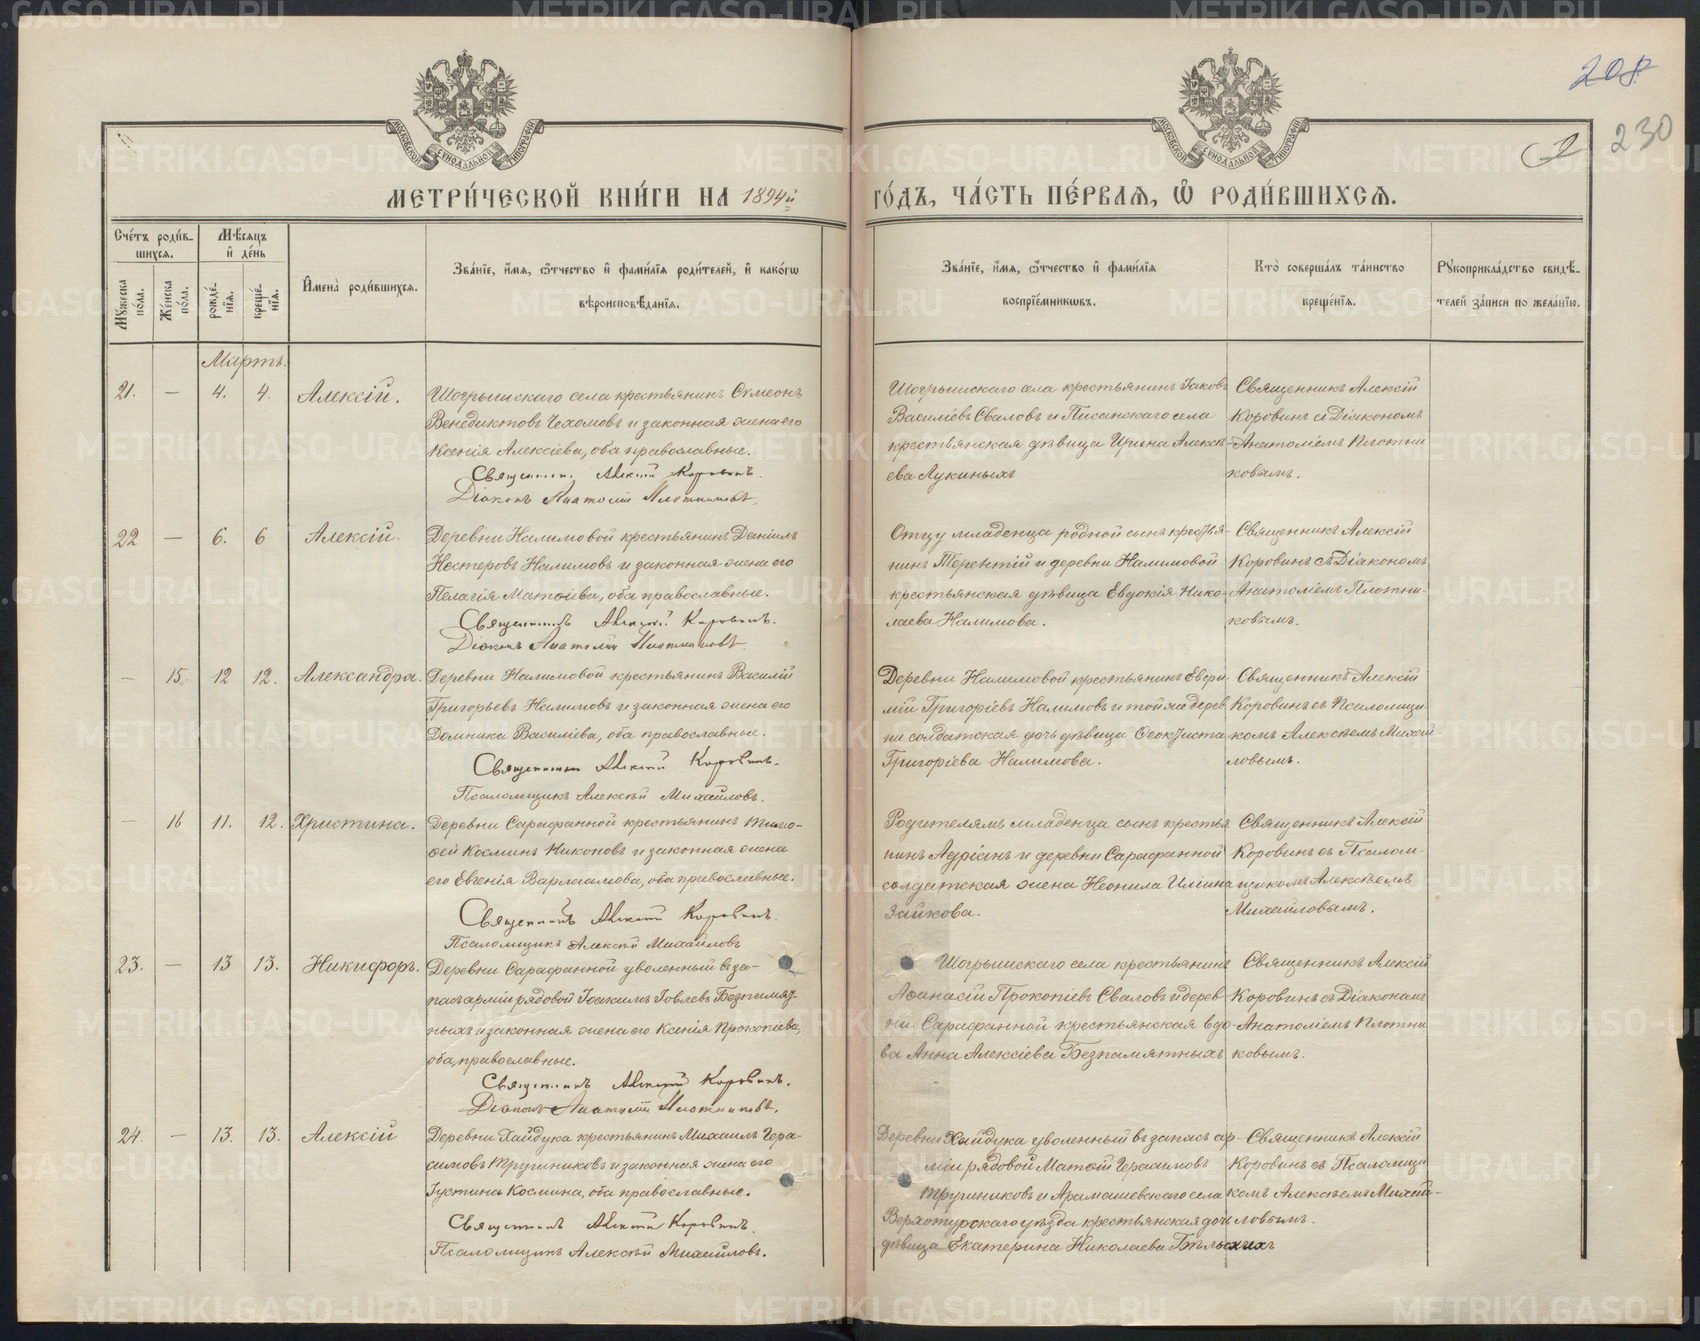 208
230
МЕТРИ́ЧЕСКОЙ КНИ́ГИ НА 1894й
ГО́ДЪ, ЧА́СТЬ ПЕ́РВАѦ, Ѡ҆ РОДИ́ВШИХСѦ.
Сче́тъ роди́в-
шихсѧ.
Мѣ́сѧцъ
и҆ де́нь
Мꙋ́жеска по́ла.
Же́нска по́ла.
рожде́-
нїѧ.
креще́-
нїѧ.
И҆мена̀ роди́вшихсѧ.
Зва́нїе, и҆́мѧ, ѻ҆́тчество и҆ фами́лїѧ роди́телей, и҆ како́гѡ
вѣроисповѣ́данїѧ.
Зва́нїе, и҆́мѧ, ѻ҆́тчество и҆ фами́лїѧ
воспрїе́мникѡвъ.
Кто̀ соверша́лъ та́инство
креще́нїѧ.
Рꙋкоприкла́дство свидѣ́-
телей за́писи по жела́нїю.
Мартъ.
21. — 4. 4. Алексій.
Шогрышскаго села крестьянинъ Сѵмеонъ
Венедиктовъ Чехомовъ и законная жена его
Ксенія Алексіева, оба православные.
Священникъ Алексій Коровинъ.
Діаконъ Анатолій Плотниковъ.
Шогрышскаго села крестьянинъ Іаковъ
Василіевъ Сваловъ и Писанскаго села
крестьянская дѣвица Ирина Алексѣ-
ева Лукиныхъ
Священникъ Алексій
Коровинъ съ Діакономъ
Анатоліемъ Плотни
ковымъ.
22 — 6. 6 Алексій.
Деревни Налимовой крестьянинъ Даніилъ
Нестеровъ Налимовъ и законная жена его
Пелагія Матѳіева, оба православные.
Священникъ Алексій Коровинъ.
Діаконъ Анатолій Плотниковъ
Отцу младенца родной сынъ крестья-
нинъ Терентій и деревни Налимовой
крестьянская дѣвица Евдокія Нико-
лаева Налимова.
Священникъ Алексій
Коровинъ съ Діакономъ
Анатоліемъ Плотни-
ковымъ.
— 15. 12 12. Александра.
Деревни Налимовой крестьянинъ Василій
Григорьевъ Налимовъ и законная жена его
Домника Василіева, оба православные.
Священникъ Алексій Коровинъ.
Псаломщикъ Алексѣй Михайловъ.
Деревни Налимовой крестьянинъ Евѳи-
мій Григоріевъ Налимовъ и той же дерев
ни солдатская дочь дѣвица Ѳеоктиста
Григоріева Налимова.
Священникъ Алексій
Коровинъ съ Псаломщи
комъ Алексѣемъ Михай-
ловымъ.
— 16 11. 12. Христина.
Деревни Сарафанной крестьянинъ Тимо-
ѳей Косминъ Никоновъ и законная жена
его Евгенія Варлаамова, оба православные.
Священникъ Алексій Коровинъ.
Псаломщикъ Алексѣй Михайловъ
Родителямъ младенца сынъ крестья
нинъ Адріанъ и деревни Сарафанной
солдатская жена Неонила Иліина
Зайкова.
Священникъ Алексій
Коровинъ съ Псалом-
щикомъ Алексѣемъ
Михайловымъ.
23. — 13 13. Никифоръ.
Деревни Сарафанной уволенный въ за-
пасъ арміи рядовой Іоакимъ Іовлевъ Безпамят-
ныхъ и законная жена его Ксенія Прокопіева,
оба православные.
Священникъ Алексій Коровинъ.
Діаконъ Анатолій Плотниковъ.
Шогрышскаго села крестьянинъ
Аѳанасій Прокопіевъ Сваловъ и дерев
ни Сарафанной крестьянская вдо-
ва Анна Алексіева Безпамятныхъ
Священникъ Алексій
Коровинъ съ Діакономъ
Анатоліемъ Плотни
ковымъ.
24. — 13. 13. Алексій
Деревни Хайдука крестьянинъ Михаилъ Гера-
симовъ Тручниковъ и законная жена его
Іустина Космина, оба православные.
Священникъ Алексій Коровинъ.
Псаломщикъ Алексѣй Михайловъ.
Деревни Хайдука уволенный въ запасъ ар-
міи рядовой Матѳій Герасимовъ
Тручниковъ и Арамашевскаго села
Верхотурскаго уѣзда крестьянская дочь
дѣвица Екатерина Николаева Бѣльскихъ
Священникъ Алексій
Коровинъ съ Псаломщи
комъ Алексѣемъ Михай-
ловымъ.
METRIKI.GASO-URAL.RU